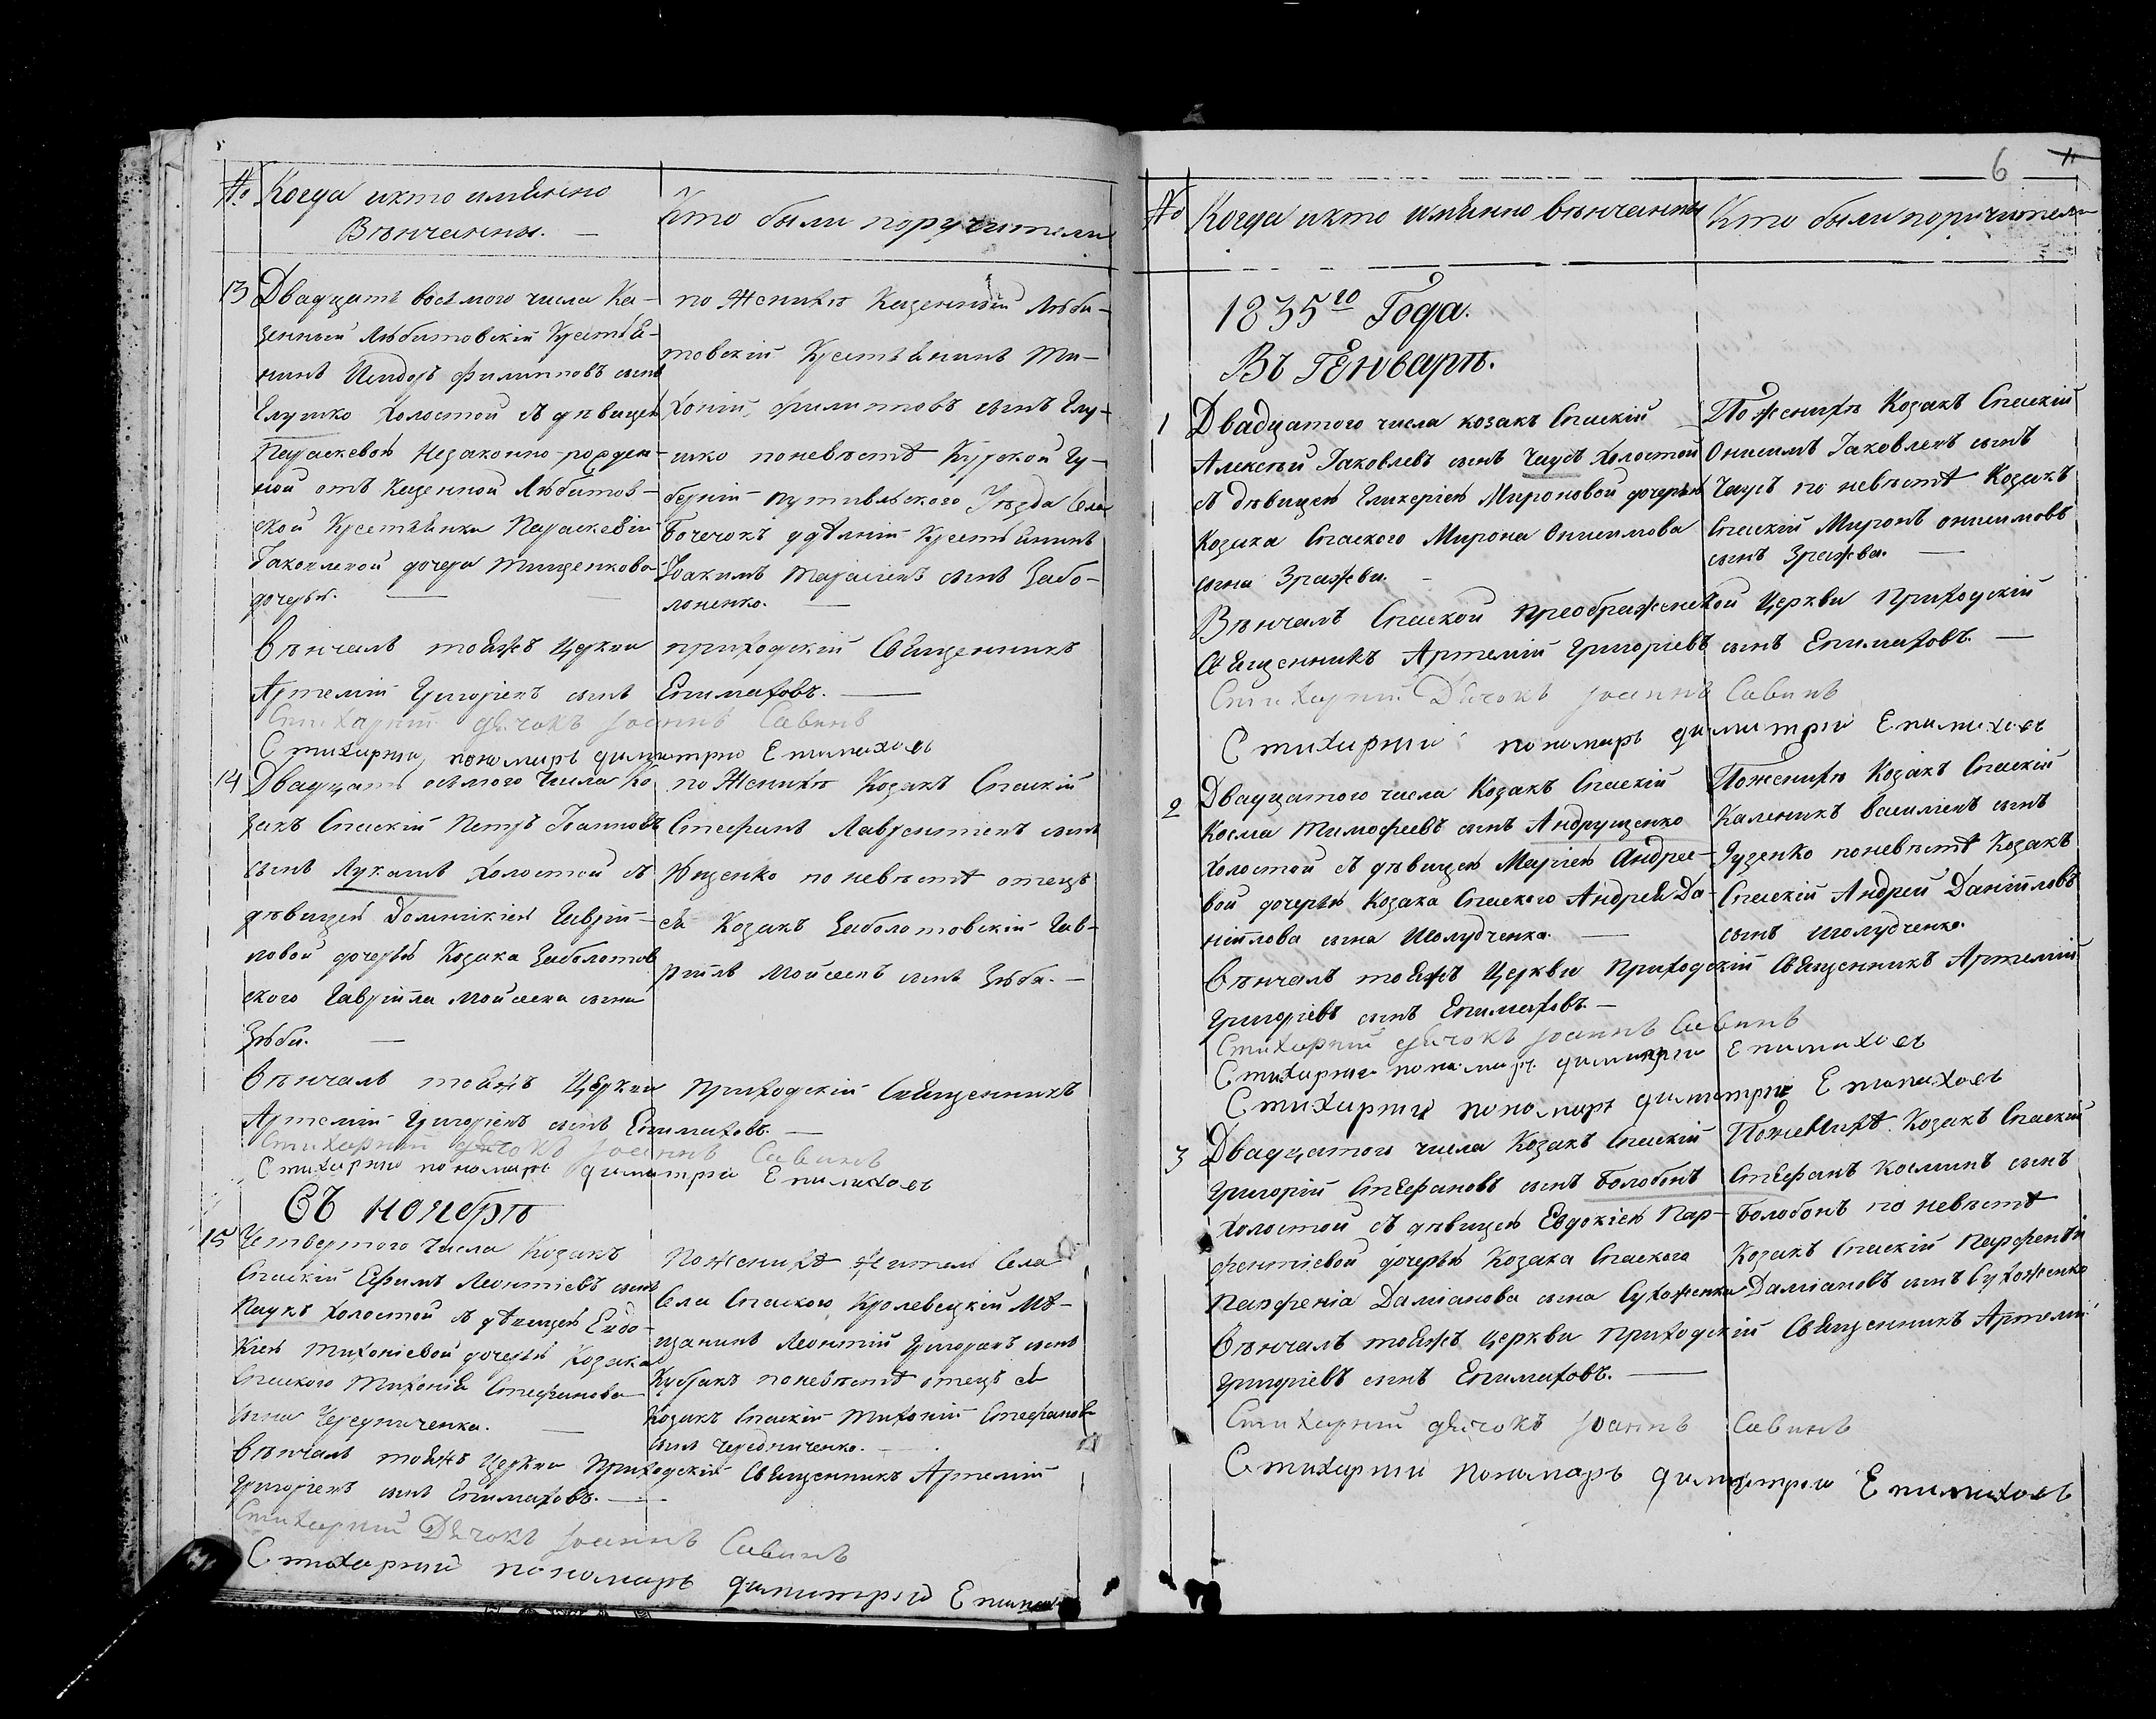 № Когда и кто имянно
Вѣнчанны. —
Кто были поручители
13 Двадцать восьмого числа Ка-
зенный Любитовскій Крестья-
нинъ Исидоръ Филипповъ сынъ
Глушко Холостой съ дѣвицею
Параскевою Незаконно-рожден-
ной отъ Казенной Любитов-
ской Крестьянки Параскевіи
Іаковлевой дочери Тищенкова
дочерью. —
по Женихѣ Казенный Люби-
товскій Крестьянинъ Ти-
хоній Филипповъ сынъ Глу-
шко по невѣстѣ Курской Гу-
берніи Путивльского Уѣзда Села
Бочечокъ удѣлній Крестьянинъ
Іоакимъ Тарасіевъ сынъ Забо-
лоненко. —
Вѣнчалъ тояжъ Церкви приходскій Священникъ
Артемій Григоріевъ сынъ Епимаховъ. —
Стихарній дячокъ Іоаннъ Савинъ
Стихарни пономаръ димитрии Епимаховъ
14 Двадцать осьмого Числа Ко-
закъ Спаскій Петръ Іоанновъ
сынъ Лукашъ Холостой съ
дѣвицею Домникіею Гавріи-
ловой дочерью Козака Заболотов
ского Гавріила Мойсеева сына
Зюби. —
по Женихѣ Козакъ Спаскій
Стефанъ Лаврентіевъ сынъ
Ющенко по невѣстѣ отецъ
ея Козакъ Заболотовскій Гав-
ріилъ Мойсеевъ сынъ Зюби. —
Вѣнчалъ тояжъ Церкви Приходскій Священникъ
Артемій Григоріевъ сынъ Епимаховъ. —
Стихарний дячокъ Іоаннъ Савинъ
Стихарни пономаръ димитрии Епимаховъ
Въ ноябрѣ
15 Четвертого Числа Козакъ
Спаскій Ефимъ Леонтіевъ сынъ
Паукъ Холостой съ дѣвицею Евдо-
кіею Тихоніевой дочерью Козака
Спаского Тихонія Стефанова
сына Чередниченка. —
По женихѣ Житель Села
Села Спаского Кролевецкій Мѣ-
щанинъ Леонтій Григоревъ сынъ
Кубракъ по невѣстѣ отецъ ея
Козакъ Спаскій Тихоній Стефановъ
сынъ Чередниченко. —
Вѣнчалъ тояжъ Церкви Приходскій Священникъ Артемій
Григоріевъ сынъ Епимаховъ. —
Стихарний Дячокъ Іоаннъ Савинъ
Стихарний пономаръ димитрий
6
№ Когда и кто имянно вѣнчанны
Кто были поручители
1835го Года.
Въ Генварѣ.
1 Двадцатого числа козакъ Спаскій
Алексѣй Іаковлевъ сынъ Чаусъ Холостой
съ дѣвицею Гликеріею Мироновой дочерью
Козака Спаского Мирона Онисимова
сына Зражеви. —
По женихѣ Козакъ Спаскій
Онисимъ Іаковлевъ сынъ
Чаусъ по невѣстѣ Козакъ
Спаскій Миронъ Онисимовъ
сынъ Зражева. —
Вѣнчалъ Спаской Преображенской Церкви Приходскій
Священникъ Артемій Григоріевъ сынъ Епимаховъ. —
Стихарний Дячокъ Іоаннъ Савинъ
Стихарний пономаръ димитрии Епимаховъ
2 Двадцатого числа Козакъ Спаскій
Косма Тимофеевъ сынъ Андрущенко
Холостой съ дѣвицею Маріею Андрее-
вой дочерью Козака Спаского Андрея Да-
ніилова сына Шолудченка. —
По женихѣ Козакъ Спаскій
Каленикъ Василіевъ сынъ
Гузенко по невѣстѣ Козакъ
Спаскій Андрей Даніиловъ
сынъ Шолудченко.
Вѣнчалъ тояжъ Церкви Приходскій Священникъ Артемій
Григоріевъ сынъ Епимаховъ. —
Стихарний дячокъ Іоаннъ Савинъ
Стихарни пономаръ димитрии Епимаховъ
Стихарний пономаръ димитрии Епимаховъ
3 Двадцатого числа Козакъ Спаскій
Григорій Стефановъ сынъ Болобонъ
Холостой съ дѣвицею Евдокіею Пар-
фентіевой дочерью Козака Спаского
Парфенія Даміанова сына Сухоженка
По женихѣ Козакъ Спаскій
Стефанъ Косминъ сынъ
Болобонъ по невѣстѣ
Козакъ Спаскій Парфентій
Даміановъ сынъ Сухоженко
Вѣнчалъ тояжъ Церкви Приходскій Священникъ Артемій
Григоріевъ сынъ Епимаховъ. —
Стихарний дячокъ Іоаннъ Савинъ
Стихарний Пономаръ димитрии Епимаховъ